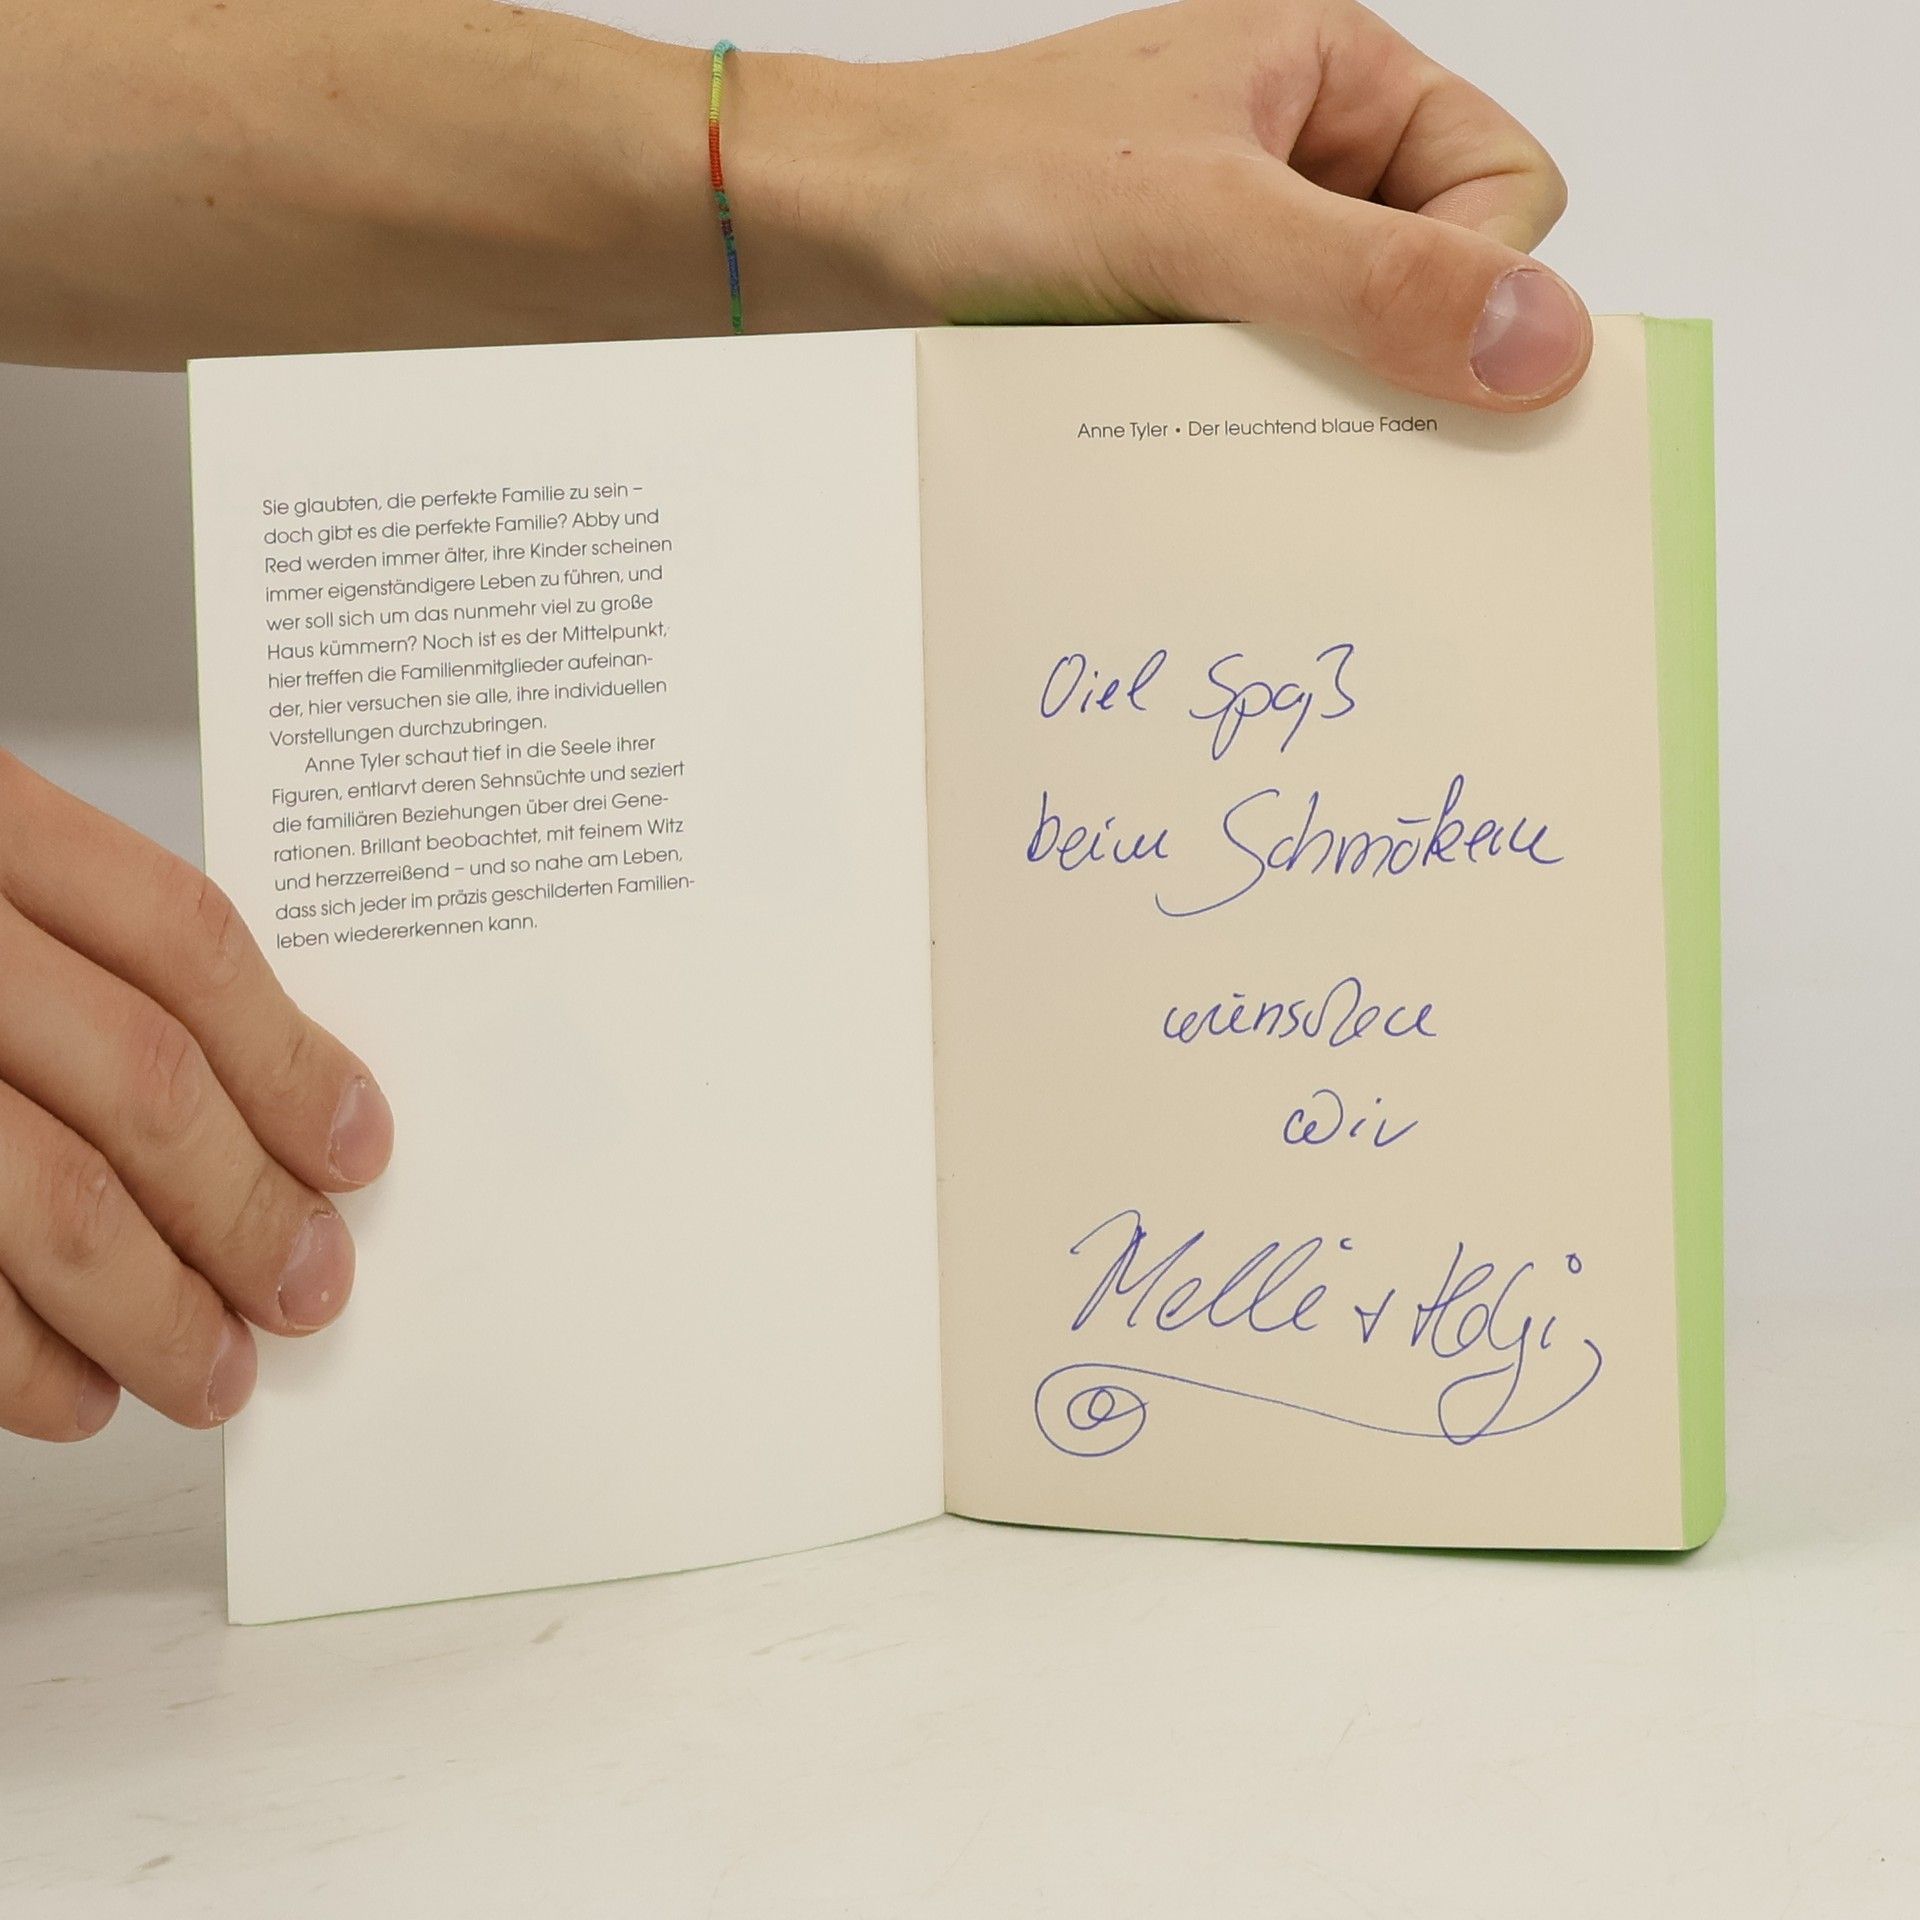 Sie glaubten, die perfekte Familie zu sein –
doch gibt es die perfekte Familie? Abby und
Red werden immer älter, ihre Kinder scheinen
immer eigenständigere Leben zu führen, und
wer soll sich um das nunmehr viel zu große
Haus kümmern? Noch ist es der Mittelpunkt,
hier treffen die Familienmitglieder aufeinan-
der, hier versuchen sie alle, ihre individuellen
Vorstellungen durchzubringen.
Anne Tyler schaut tief in die Seele ihrer
Figuren, entlarvt deren Sehnsüchte und seziert
die familiären Beziehungen über drei Gene-
rationen. Brillant beobachtet, mit feinem Witz
und herzzerreißend – und so nahe am Leben,
dass sich jeder im präzis geschilderten Familien-
leben wiedererkennen kann.
Anne Tyler • Der leuchtend blaue Faden
Viel Spaß
beim Schmökern
wünschen
wir
Melli +